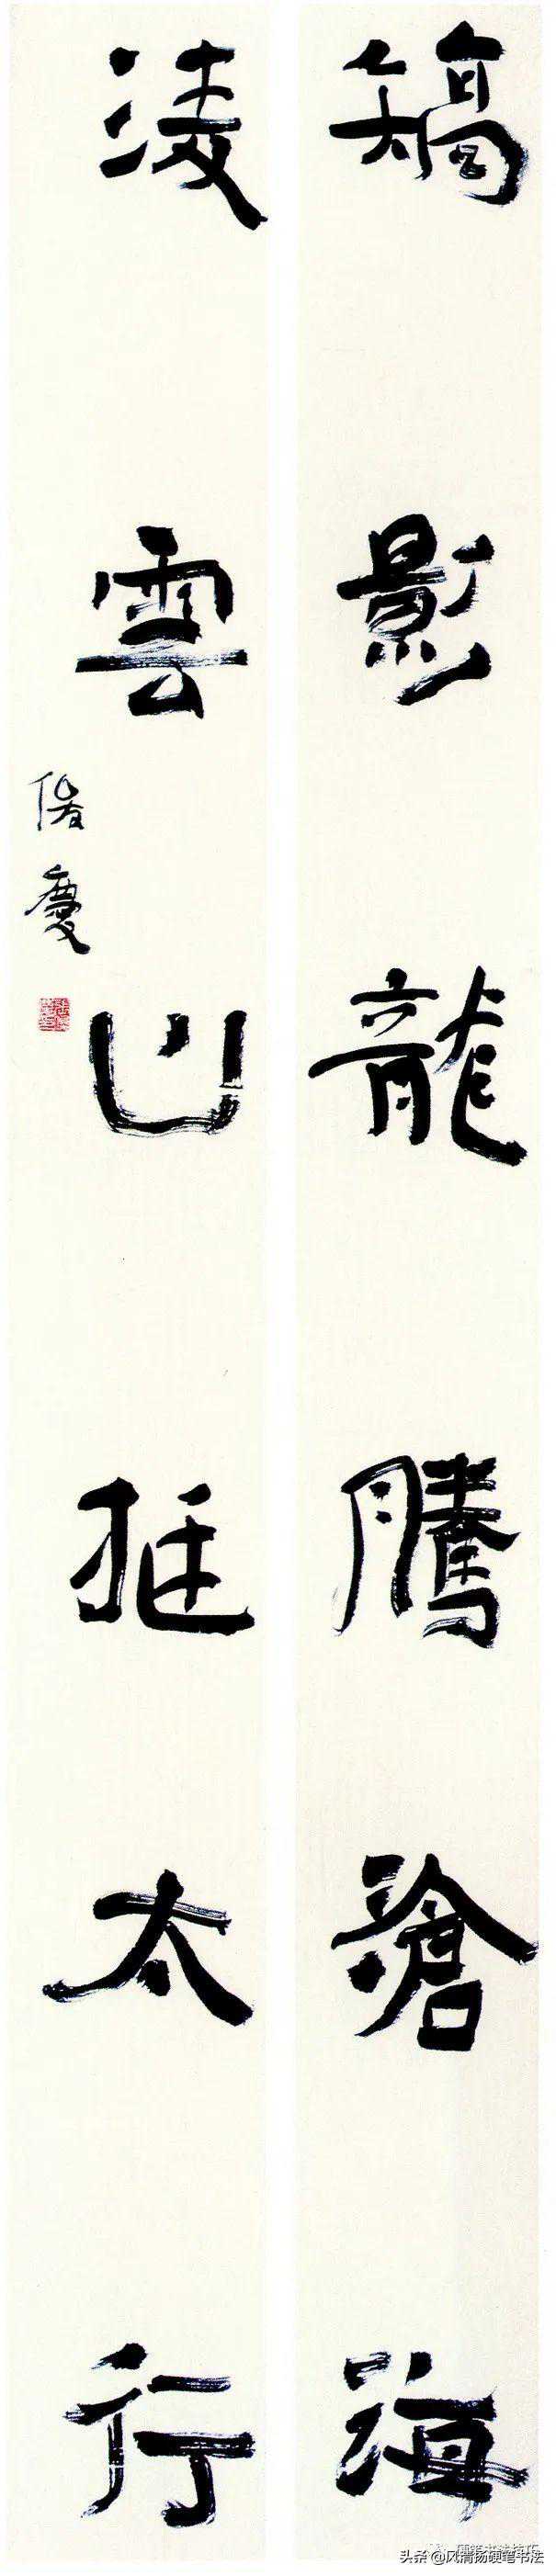 矯影龍騰滄海
凌雲山挺太行
慶
头条 @风清扬硬笔书法